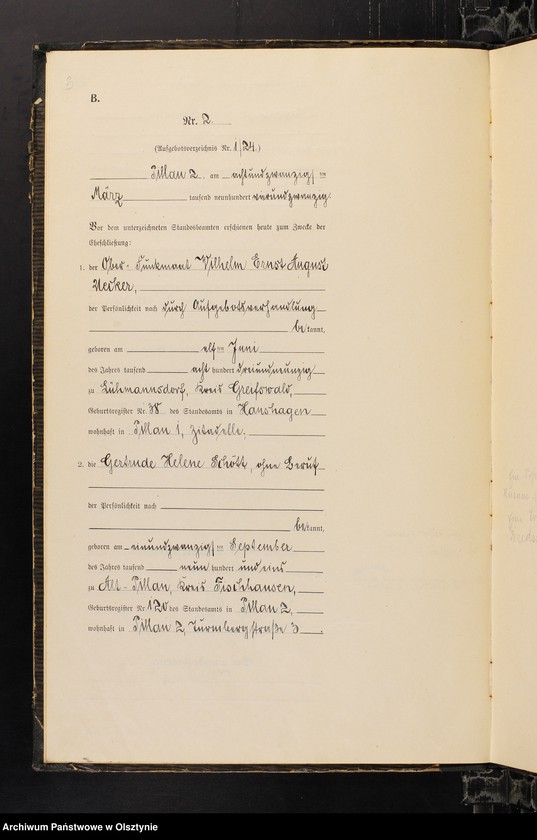 B.
Nr. 2.
(Aufgebotsverzeichnis Nr. 1/24.)
Pillau 2. am achtundzwanzigsten
März tausend neunhundert vierundzwanzig.
Vor dem unterzeichneten Standesbeamten erschienen heute zum Zwecke der
Eheschließung:
1. der Ober-Funkmaat Wilhelm Ernst August
Uecker,
der Persönlichkeit nach durch Aufgebotsverhandlung
bekannt,
geboren am elften Juni
des Jahres tausend acht hundert dreiundneunzig
zu Lühmannsdorf, Kreis Greifswald,
Geburtsregister Nr. des Standesamts in Hanshagen
wohnhaft in Pillau 1, Zitadelle.
2. die Gertrude Helene Schött, ohne Beruf
der Persönlichkeit nach
bekannt,
geboren am neunundzwanzigsten September
des Jahres tausend neun hundert undeins
zu Alt-Pillau, Kreis Fischhausen,
Geburtsregister Nr. 120 des Standesamts in Pillau 2,
wohnhaft in Pillau 2, Turmbergstraße 3.
Archiwum Państwowe w Olsztynie